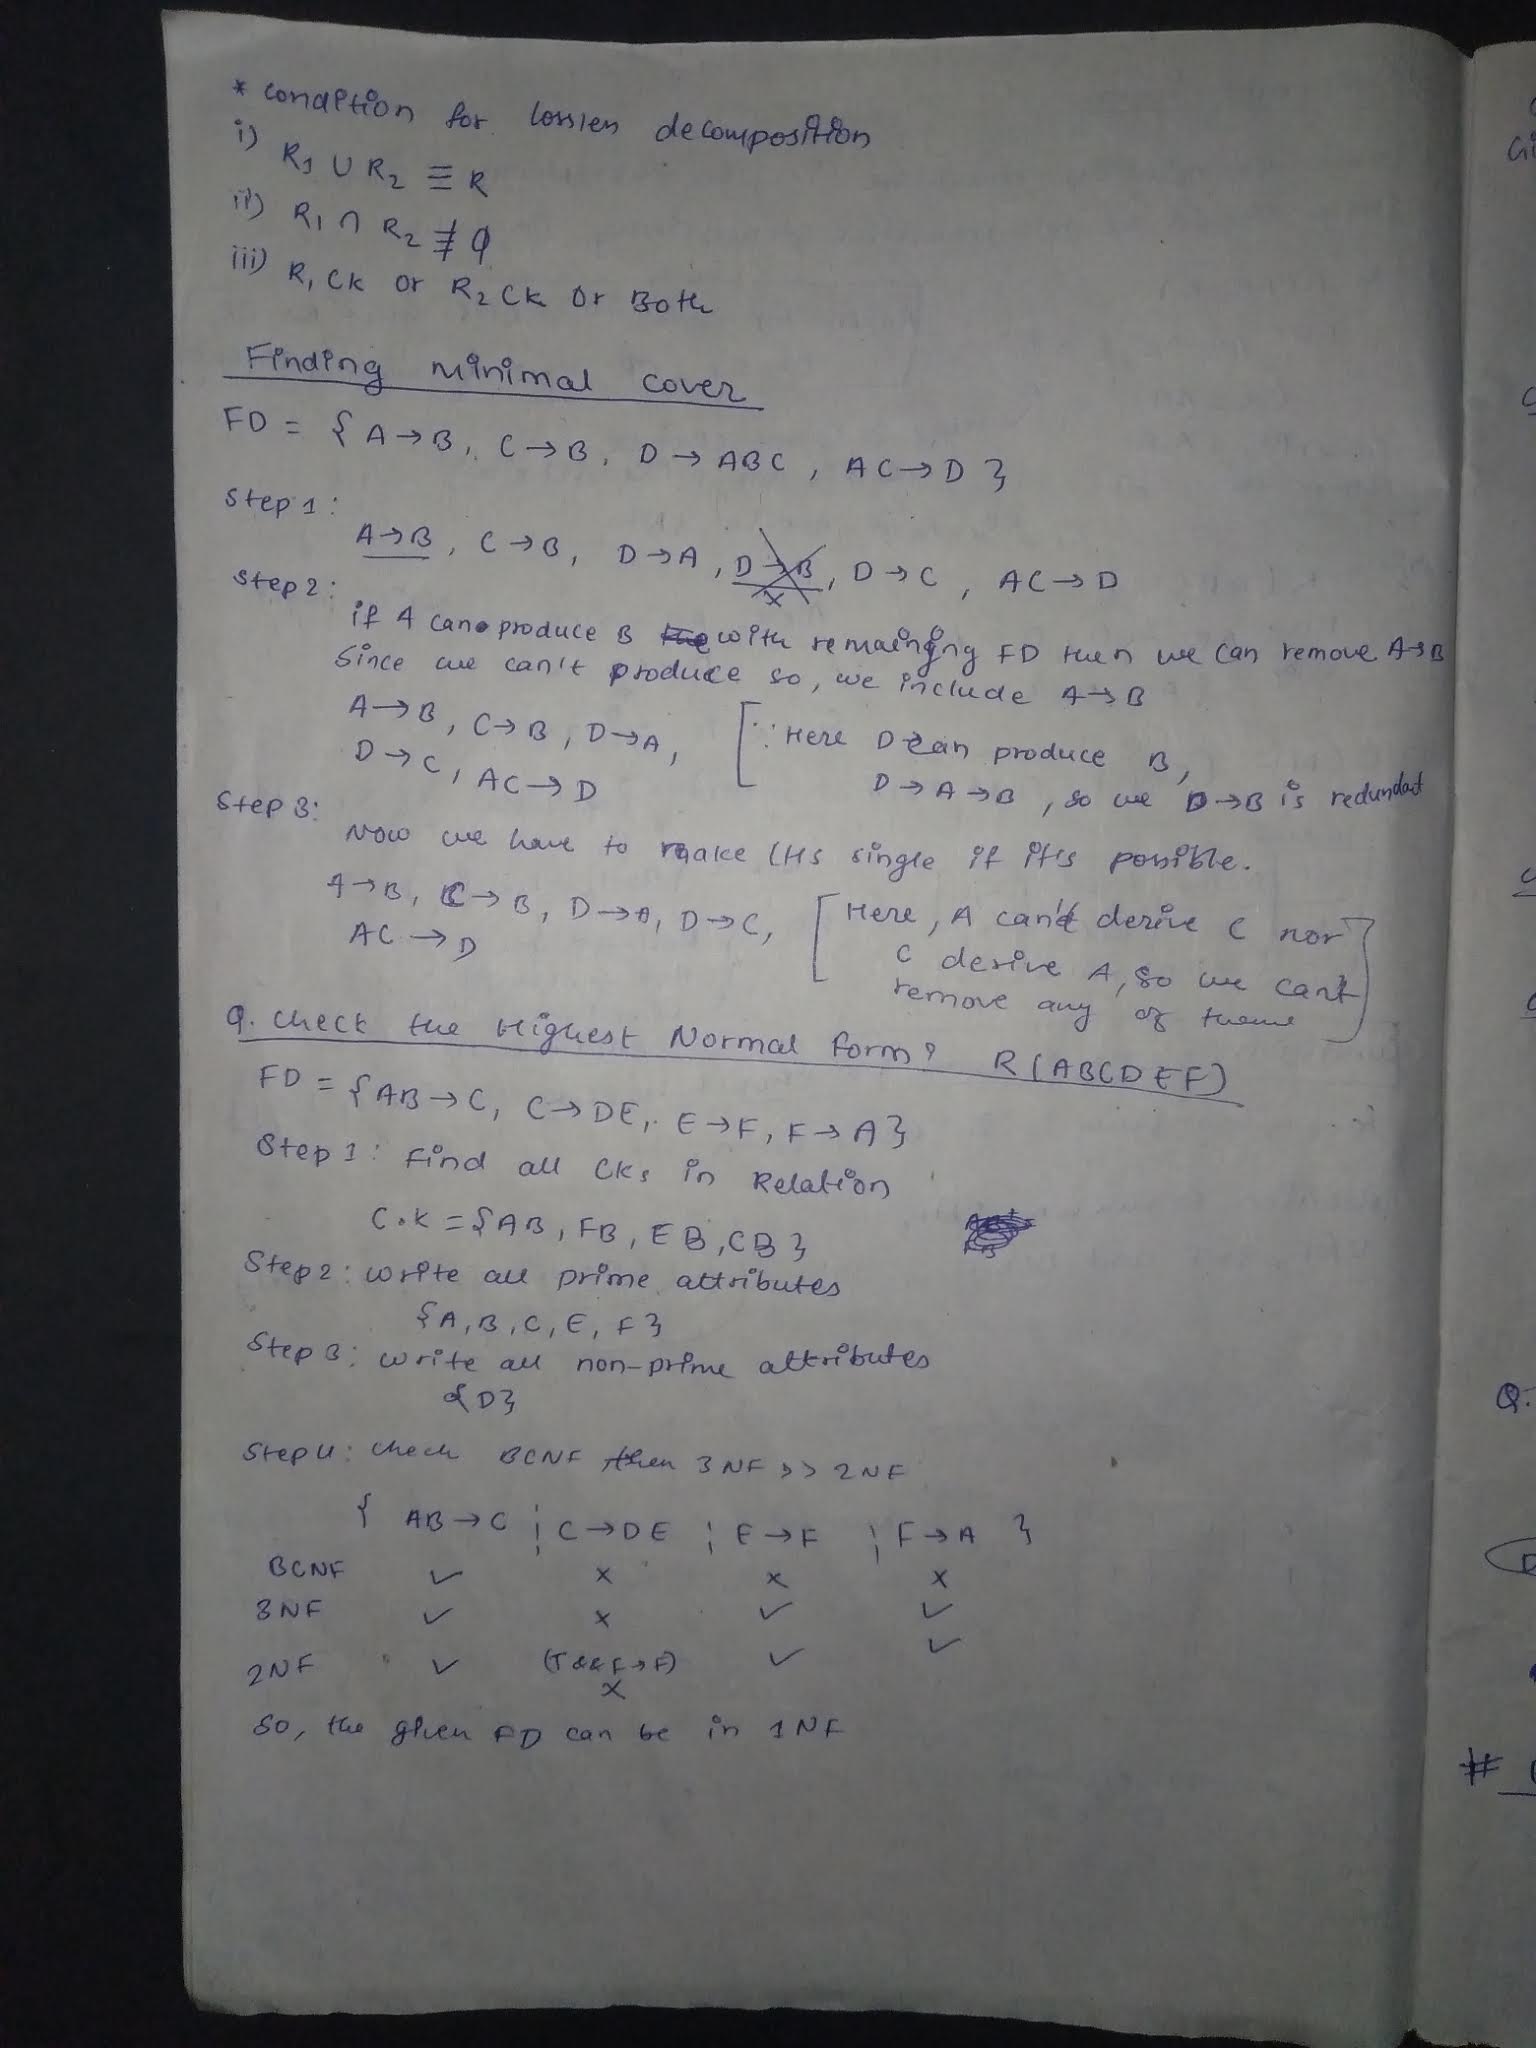 * Condition for lossless decomposition
i) R1 ∪ R2 ≡ R
ii) R1 ∩ R2 ≢ φ
iii) R1 CK or R2 CK or Both
Finding Minimal cover
FD = { A→B, C→B, D→ABC, AC→D }
Step 1:
A→B, C→B, D→A, D→B, D→C, AC→D
x
Step 2:
if A can produce B with remaining FD then we can remove A→B
Since we can't produce so, we include A→B
A→B, C→B, D→A, [∵ Here D can produce B,
D→C, AC→D D→A→B, so we D→B is redundant
Step 3:
Now we have to make LHS single if it's possible.
A→B, C→B, D→A, D→C, [Here, A can't derive C nor
AC→D C derive A, so we can't
remove any of theme]
Q. Check the Highest Normal form? R(ABCDEF)
FD = {AB→C, C→DE, E→F, F→A}
Step 1: Find all CKs in Relation
C.K = {AB, FB, EB, CB}
Step 2: Write all prime attributes
{A, B, C, E, F}
Step 3: Write all non-prime attributes
{D}
Step 4: Check BCNF then 3NF >> 2NF
{ AB→C ¦ C→DE ¦ E→F ¦ F→A }
BCNF ✓ x x x
3NF ✓ x ✓ ✓
2NF ✓ (T && F→F) ✓ ✓
x
So, the given FD can be in 1NF
Q.
#